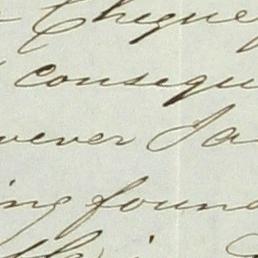 Cheque
consequ
wever I a
ing found